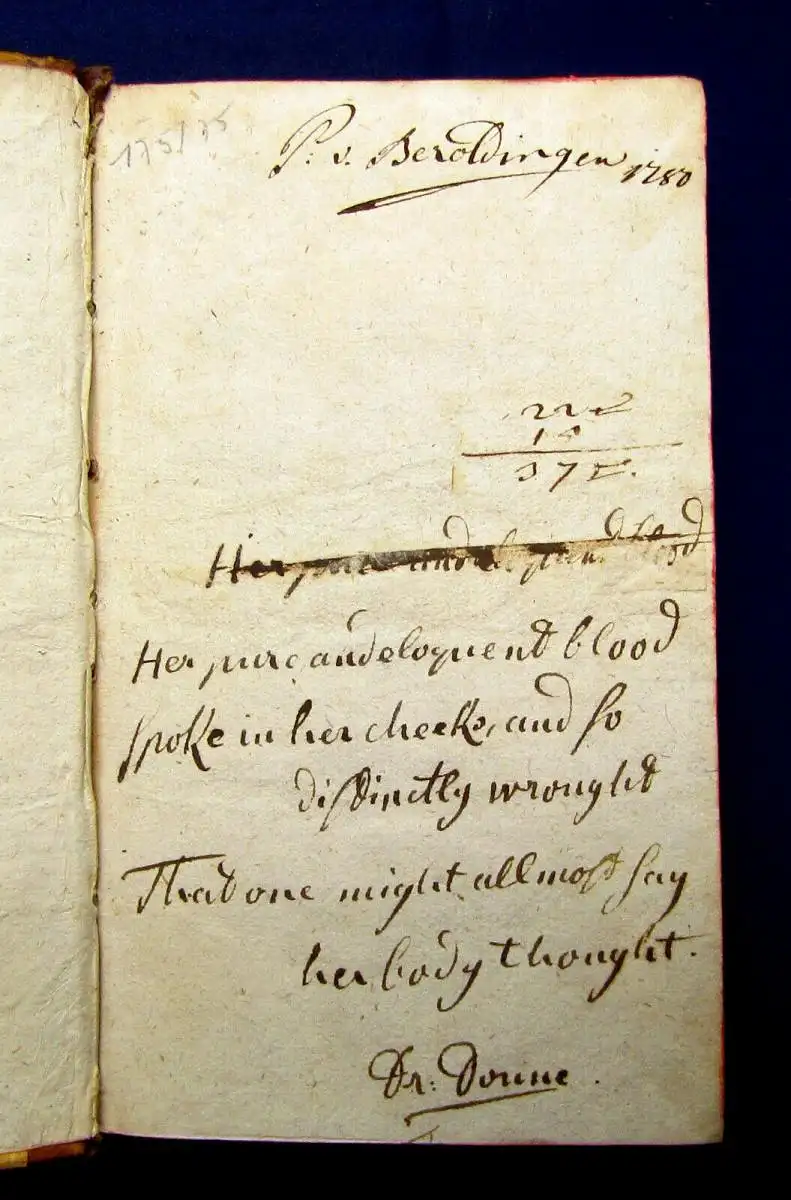 175/75
P: v. Beroldingen 1780
375.
Her pure and eloquent blood
Her pure and eloquent blood
spoke in her cheeks, and so
distinctly wrought
That one might allmost say
her body thought.
Dr: Donne.